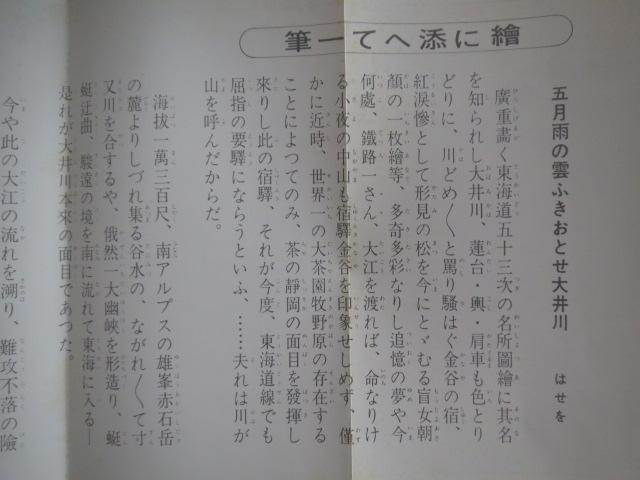 繪に添へて一筆
五月雨の雲ふきおとせ大井川
はせを
廣重畫く東海道五十三次の名所圖繪に其名
を知られし大井川、蓮台・輿・肩車も色とり
どりに、川どめ〳〵と罵り騷はぐ金谷の宿、
紅淚慘として形見の松を今にとゞむる盲女朝
顏の一枚繪等、多奇多彩なりし追憶の夢や今
何處、鐵路一さん、大江を渡れば、命なりけ
る小夜の中山も宿驛金谷を印象せしめず、僅
かに近時、世界一の大茶園牧野原の存在する
ことによつてのみ、茶の靜岡の面目を發揮し
來りし此の宿驛、それが今度、東海道線でも
屈指の要驛にならうといふ、……夫れは川が
山を呼んだからだ。
海拔一萬三百尺、南アルプスの雄峯赤石岳
の麓よりしづれ集る谷水の、ながれ〳〵て寸
又川を合するや、俄然一大幽峽を形造り、蜒
蜒迂曲、駿遠の境を南に流れて東海に入る―
是れが大井川本來の面目であつた。
今や此の大江の流れを溯り、難攻不落の險